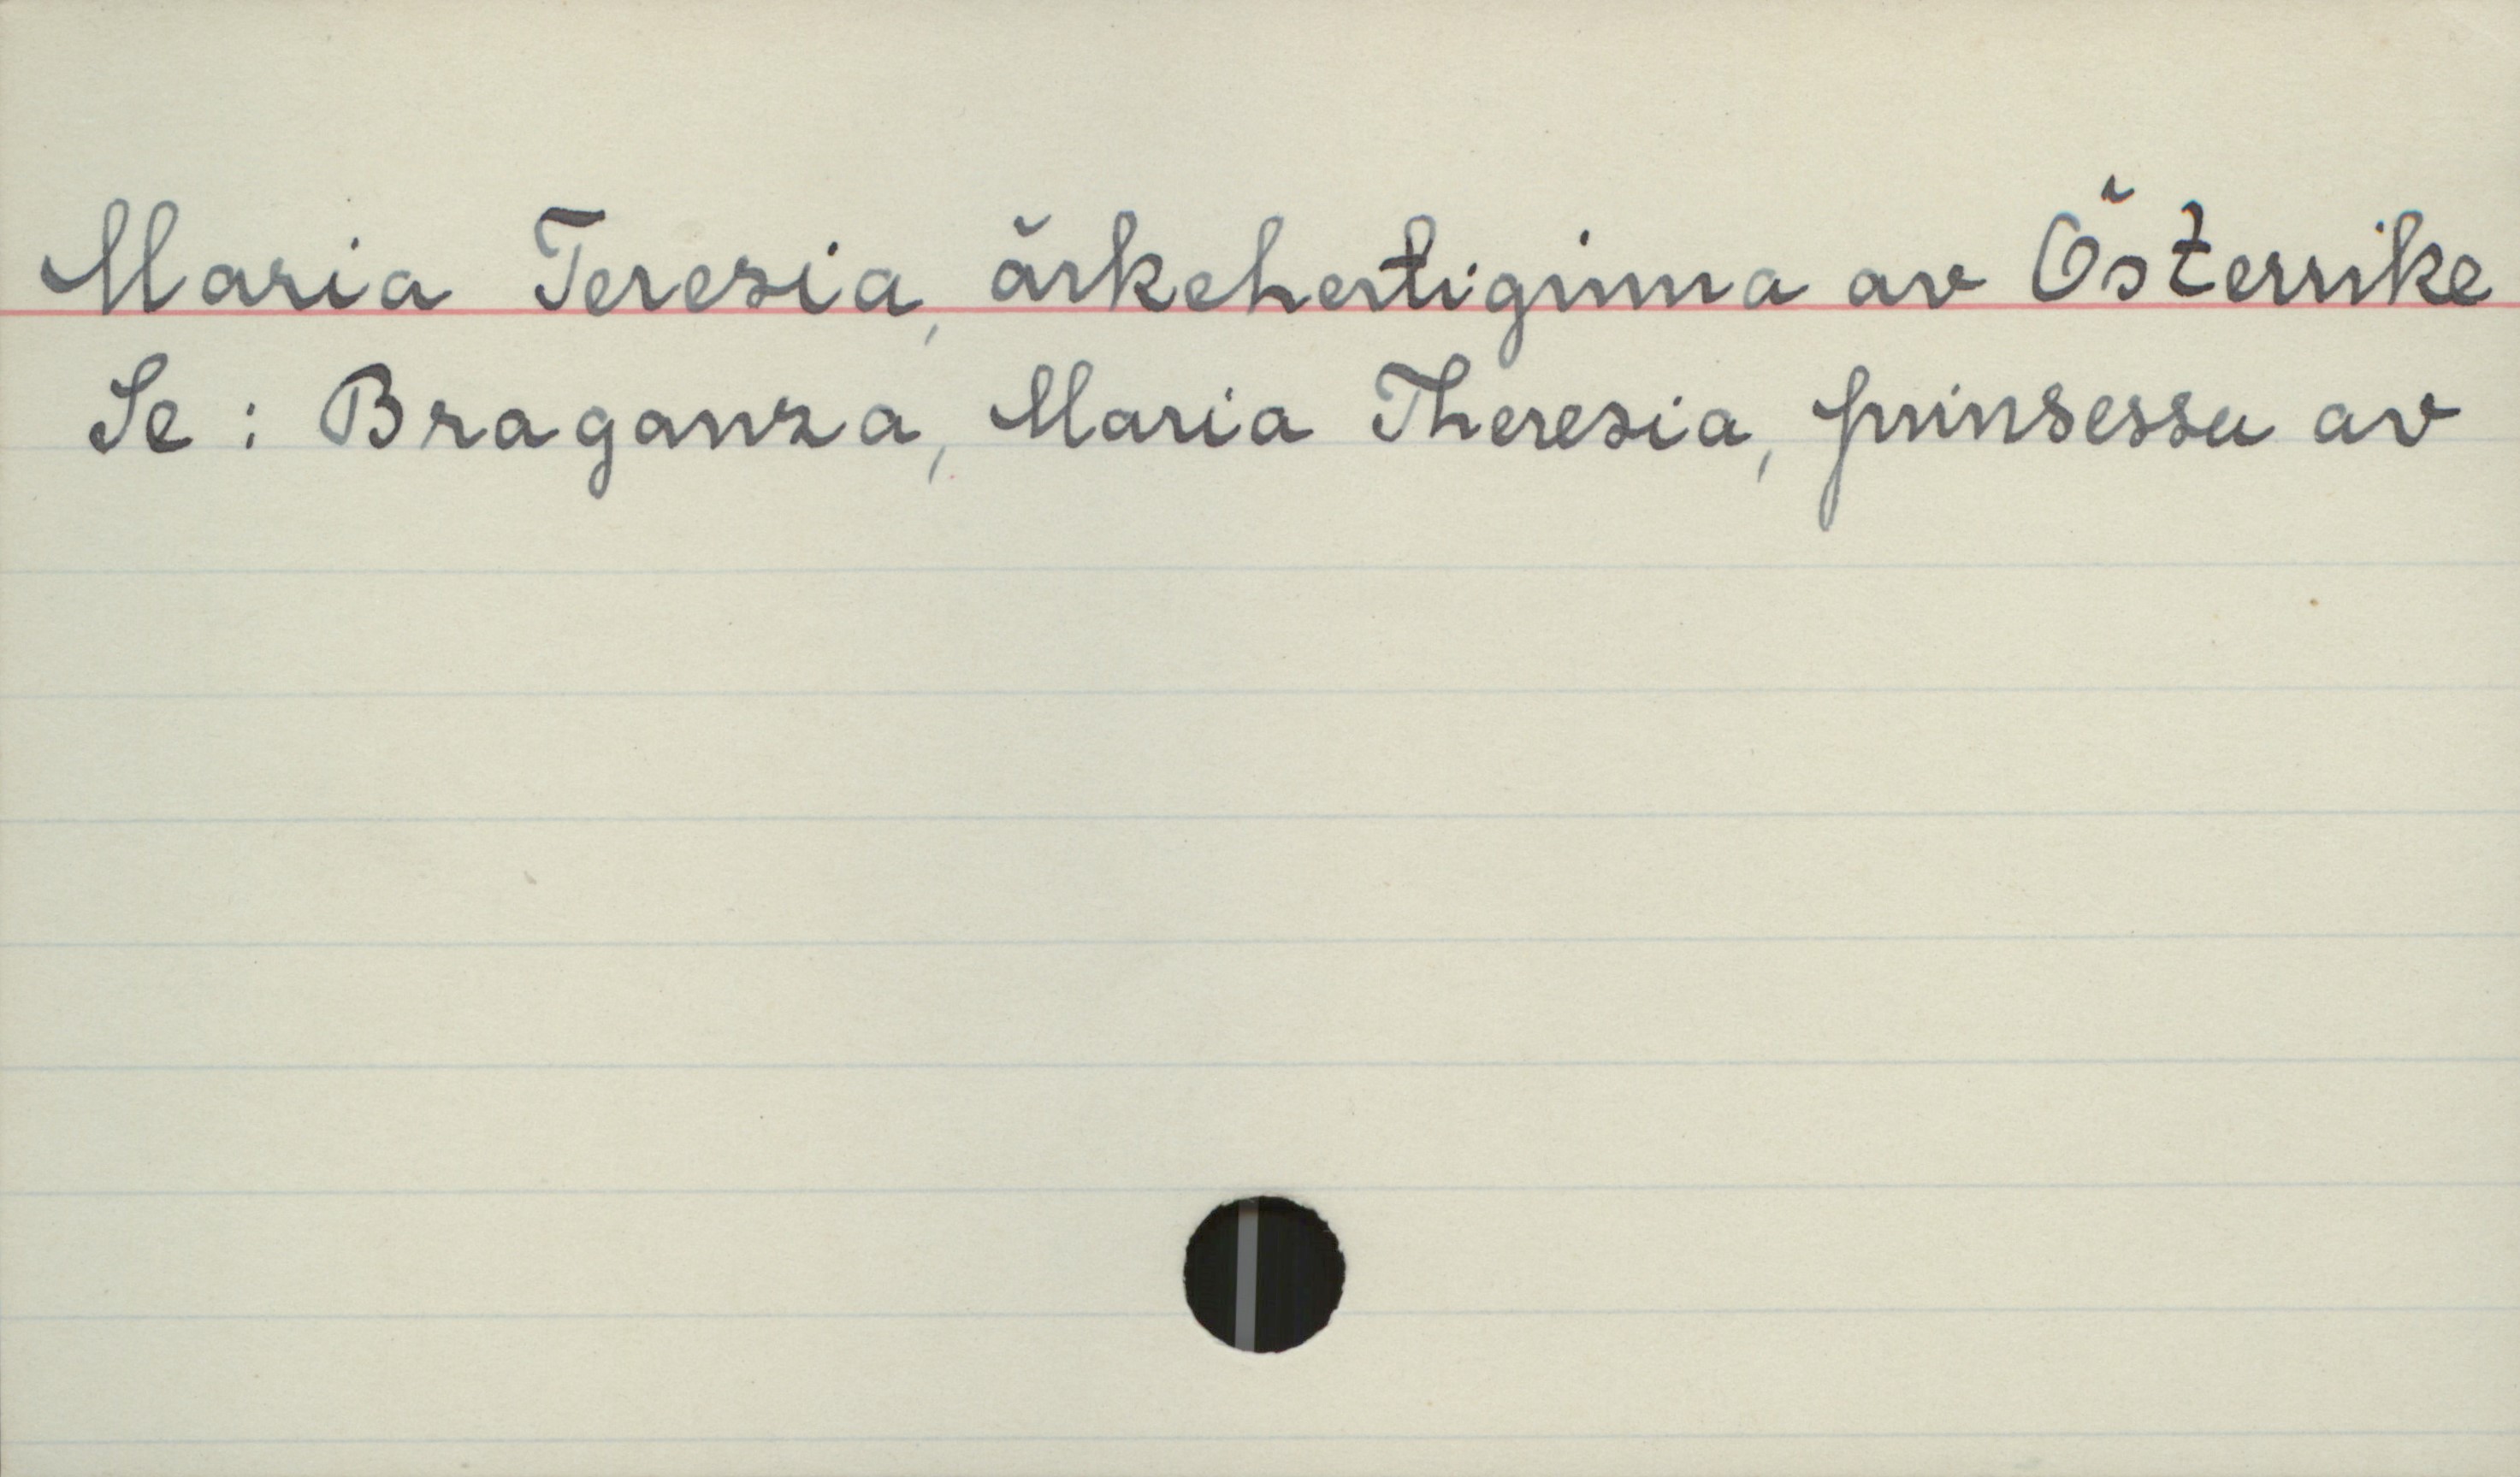 Maria Teresia, ärkehertiginna av Österrike
Se : Braganza, Maria Theresia, prinsessa av